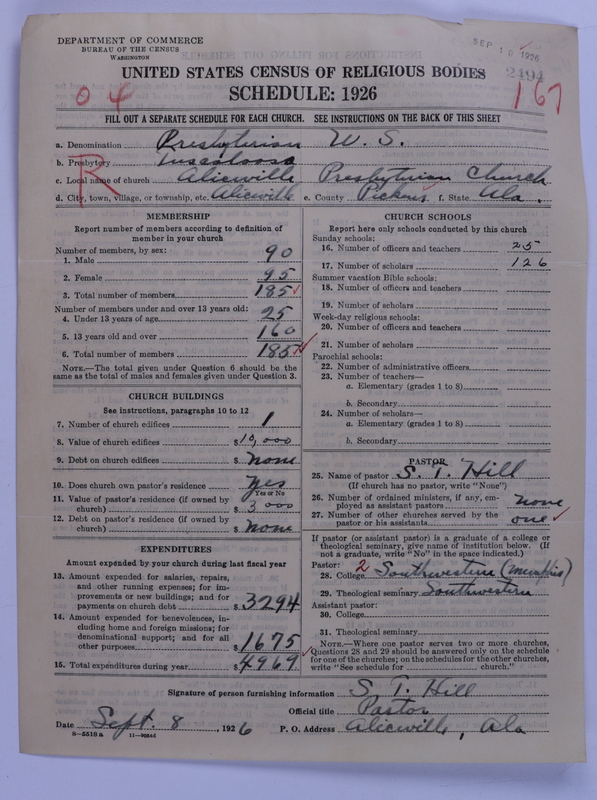 DEPARTMENT OF COMMERCE
BUREAU OF THE CENSUS
WASHINGTON
SEP 10 1926
2494
UNITED STATES CENSUS OF RELIGIOUS BODIES
SCHEDULE: 1926
04
167
R
FILL OUT A SEPARATE SCHEDULE FOR EACH CHURCH. SEE INSTRUCTIONS ON THE BACK OF THIS SHEET
a. Denomination Presbyterian U. S.
b. Presbytery Tuscaloosa
c. Local name of church Aliceville Presbyterian Church
d. City, town, village, or township, etc. Aliceville e. County Pickens f. State Ala.
MEMBERSHIP
Report number of members according to definition of
member in your church
Number of members, by sex:
1. Male 90
2. Female 95
3. Total number of members 185
Number of members under and over 13 years old:
4. Under 13 years of age 25
5. 13 years old and over 160
6. Total number of members 185
NOTE.—The total given under Question 6 should be the
same as the total of males and females given under Question 3.
CHURCH BUILDINGS
See instructions, paragraphs 10 to 12
7. Number of church edifices 1
8. Value of church edifices $10,000
9. Debt on church edifices $ none
10. Does church own pastor's residence yes
Yes or No
11. Value of pastor's residence (if owned by
church) $ 3000
12. Debt on pastor's residence (if owned by
church) $ none
EXPENDITURES
Amount expended by your church during last fiscal year
13. Amount expended for salaries, repairs,
and other running expenses; for im-
provements or new buildings; and for
payments on church debt $ 3294
14. Amount expended for benevolences, in-
cluding home and foreign missions; for
denominational support; and for all
other purposes $ 1675
15. Total expenditures during year $ 4969
CHURCH SCHOOLS
Report here only schools conducted by this church
Sunday schools:
16. Number of officers and teachers 25
17. Number of scholars 126
Summer vacation Bible schools:
18. Number of officers and teachers
19. Number of scholars
Week-day religious schools:
20. Number of officers and teachers
21. Number of scholars
Parochial schools:
22. Number of administrative officers
23. Number of teachers—
a. Elementary (grades 1 to 8)
b. Secondary
24. Number of scholars—
a. Elementary (grades 1 to 8)
b. Secondary
PASTOR
25. Name of pastor S. T. Hill
(If church has no pastor, write "None")
26. Number of ordained ministers, if any, em-
ployed as assistant pastors none
27. Number of other churches served by the
pastor or his assistants one
If pastor (or assistant pastor) is a graduate of a college or
theological seminary, give name of institution below. (If
not a graduate, write "No" in the space indicated.)
Pastor: 2
28. College Southwestern (Memphis)
29. Theological seminary Southwestern
Assistant pastor:
30. College
31. Theological seminary
NOTE.—Where one pastor serves two or more churches,
Questions 28 and 29 should be answered only on the schedule
for one of the churches; on the schedules for the other churches,
write "See schedule for church."
Signature of person furnishing information S. T. Hill
Official title Pastor
Date Sept. 8, 1926 P. O. Address Aliceville, Ala